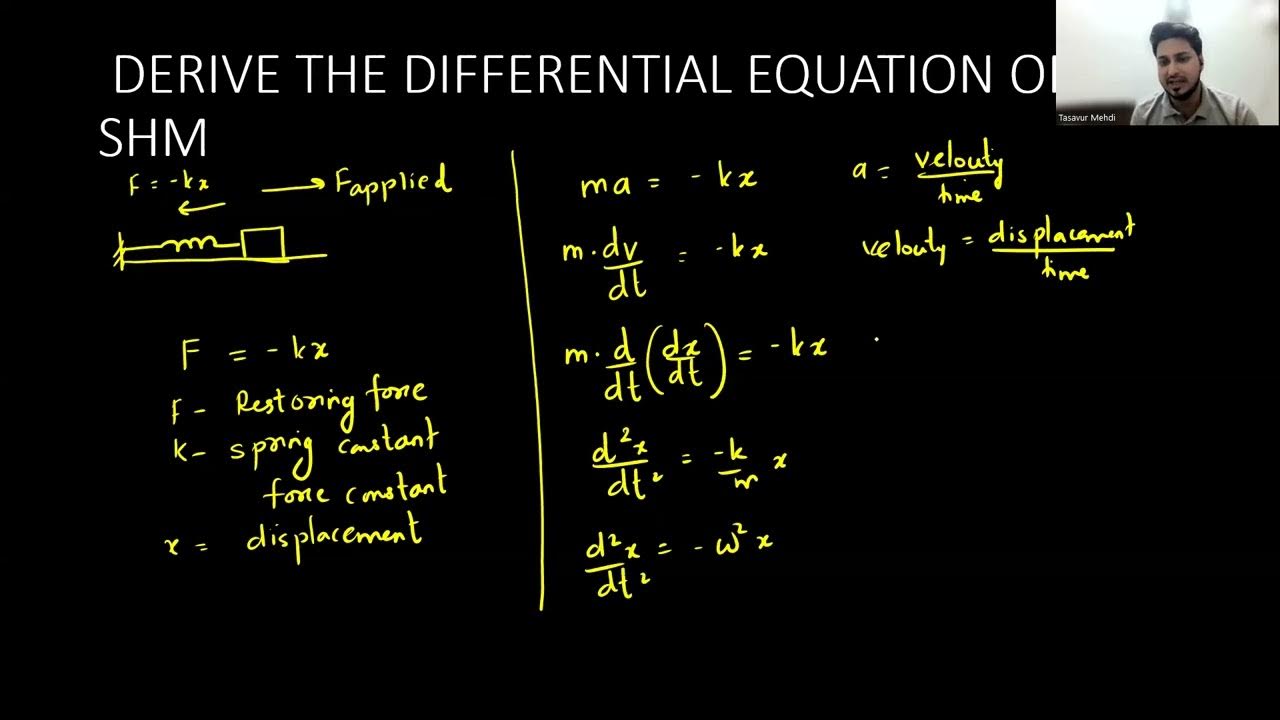 DERIVE THE DIFFERENTIAL EQUATION OF
SHM
Tasavur Mehdi
F = -kx
Fapplied
F = -kx
F - Restoring force
k - spring constant
force constant
x = displacement
ma = -kx
m. dv/dt = -kx
m. d/dt (dx/dt) = -kx
d²x/dt² = -k/m x
d²x/dt² = -ω²x
a = velocity/time
velocity = displacement/time